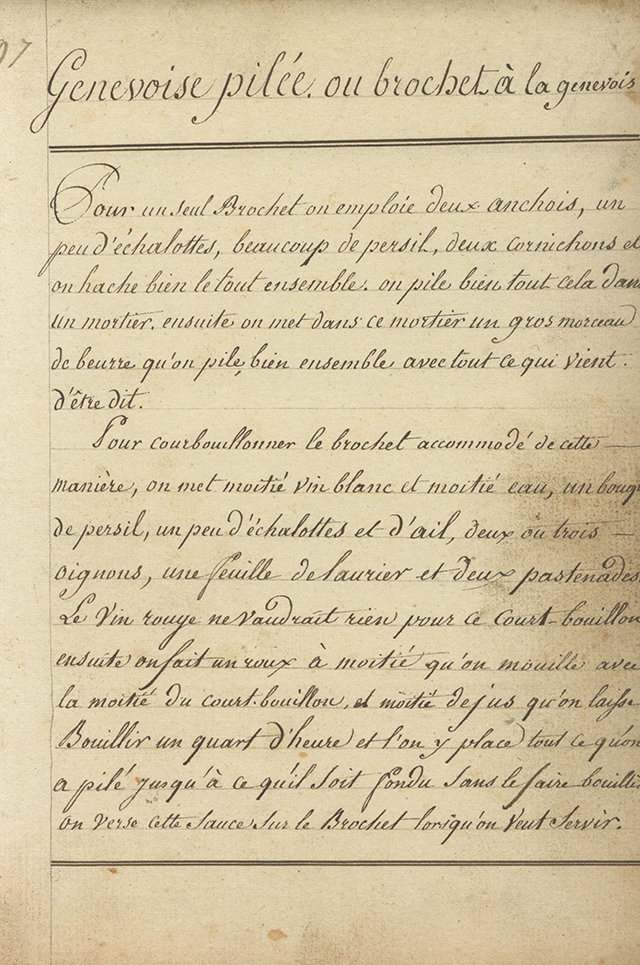 97
Genevoise pilée. ou brochet à la genevois
Pour un seul Brochet on emploie deux anchois, un
peu d'échalottes, beaucoup de persil, deux cornichons et
on hache bien le tout ensemble. on pile bien tout cela dans
un mortier. ensuite on met dans ce mortier un gros morceau
de beurre qu'on pile bien ensemble avec tout ce qui vient
d'être dit.
Pour courbouillonner le brochet accommodé de cette
manière, on met moitié vin blanc et moitié eau, un bouq
de persil, un peu d'échalottes et d'ail, deux ou trois
oignons, une feuille de laurier et deux pastenades.
Le Vin rouge ne vaudrait rien pour ce Court-bouillon
ensuite on fait un roux à moitié qu'on mouille avec
la moitié du court-bouillon, et moitié de jus qu'on laisse
Bouillir un quart d'heure et l'on y place tout ce qu'on
a pilé jusqu'à ce qu'il soit fondu sans le faire bouillir
on verse cette sauce sur le Brochet lorsqu'on Veut Servir.